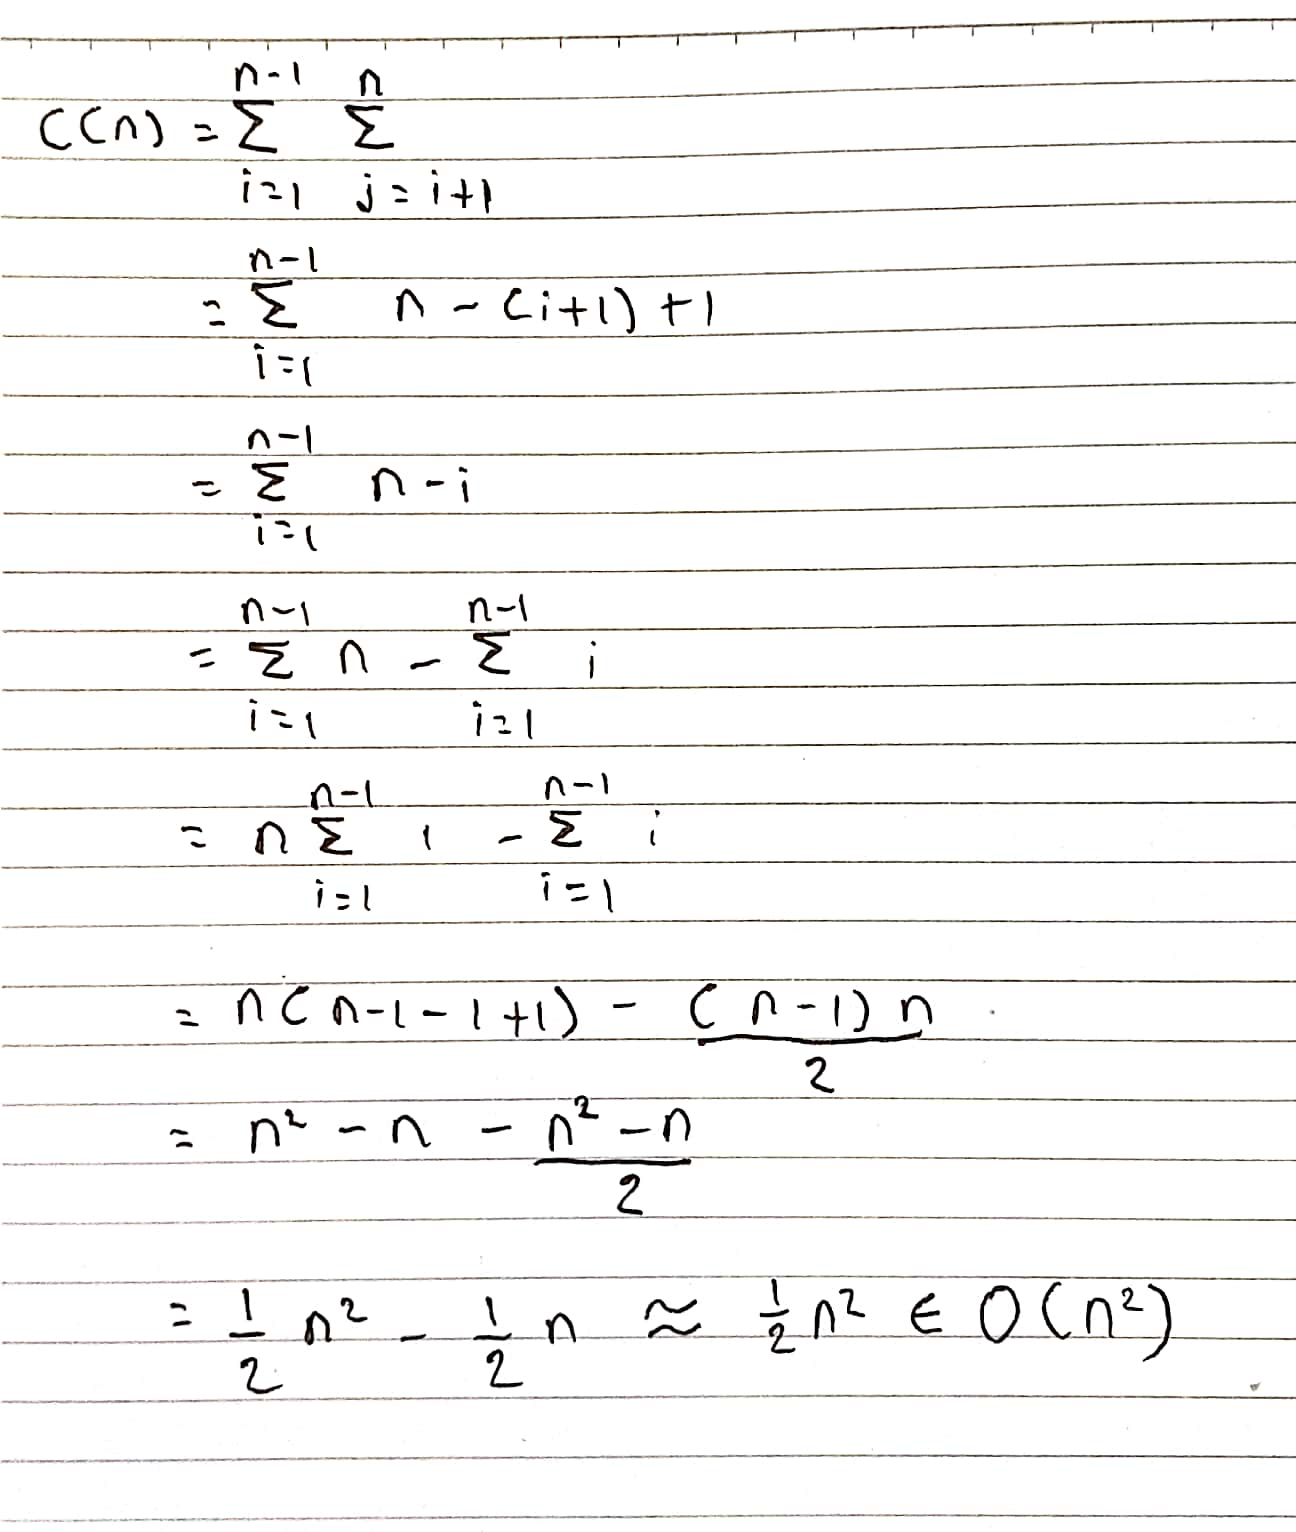 C(n) = \sum_{i=1}^{n-1} \sum_{j=i+1}^{n}
= \sum_{i=1}^{n-1} n - (i+1) + 1
= \sum_{i=1}^{n-1} n - i
= \sum_{i=1}^{n-1} n - \sum_{i=1}^{n-1} i
= n \sum_{i=1}^{n-1} 1 - \sum_{i=1}^{n-1} i
= n(n-1-1+1) - \frac{(n-1)n}{2}
= n^2 - n - \frac{n^2-n}{2}
= \frac{1}{2} n^2 - \frac{1}{2} n ≈ \frac{1}{2} n^2 ∈ O(n^2)